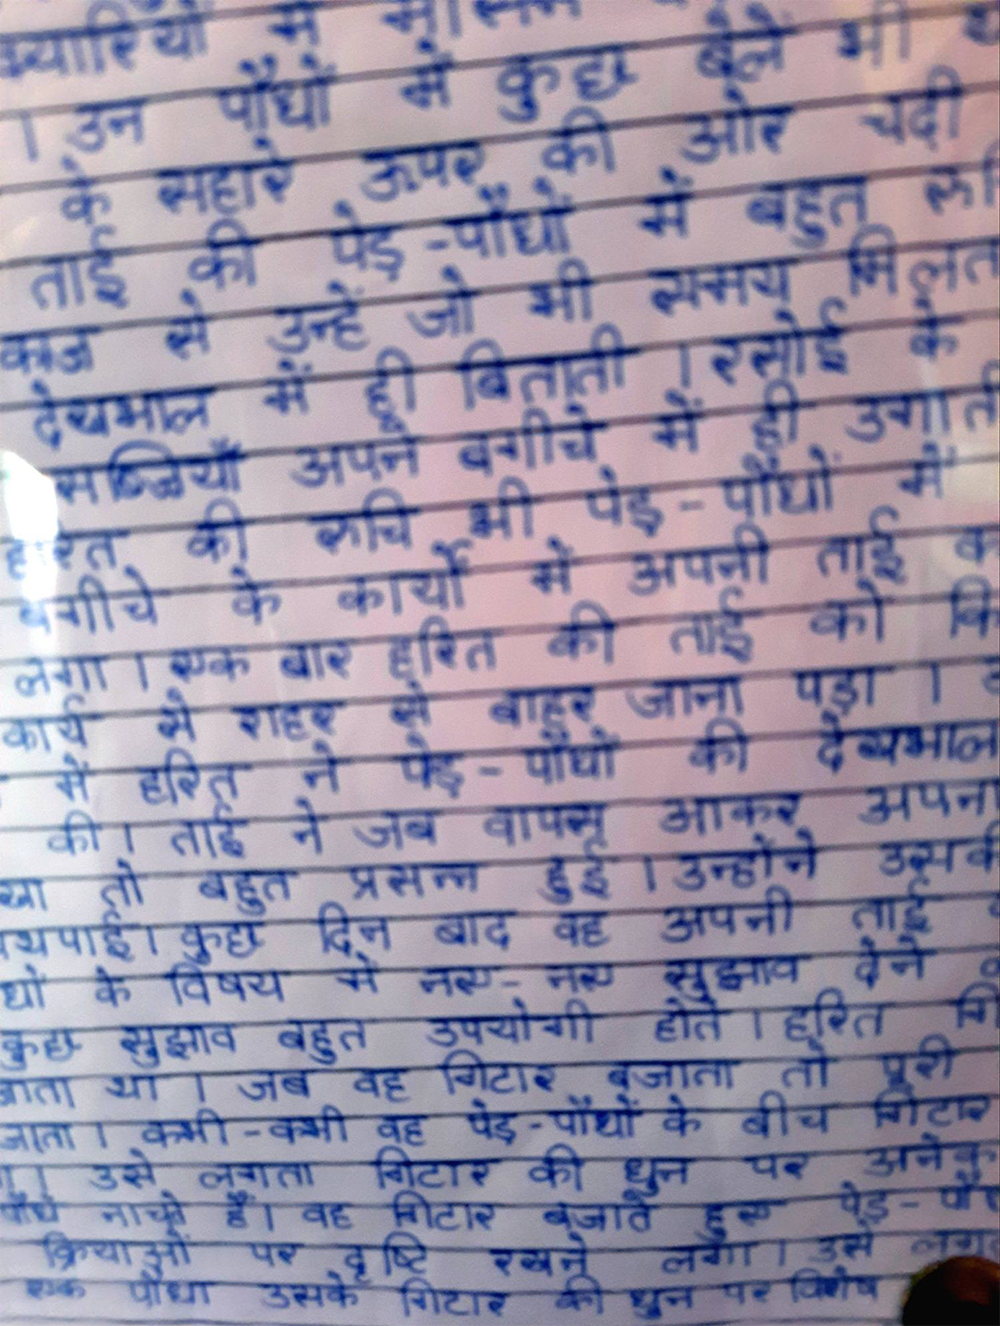 क्यारियों में मौसम
। उन पौधों में कुछ बेलें भी
के सहारे ऊपर की ओर चढी
ताई की पेड़-पौधों में बहुत
काज से उन्हें जो भी समय मिलत
देखभाल में ही बिताती । रसोई के
सब्जियाँ अपने बगीचे में ही उगाती
हरित की रूचि भी पेड़-पौधों में
बगीचे के कार्यों में अपनी ताई
लगा । एक बार हरित की ताई को
कार्य से शहर से बाहर जाना पड़ा ।
में हरित ने पेड़-पौधों की देखभाल
की । ताई ने जब वापस आकर अपना
खा तो बहुत प्रसन्न हुई । उन्होंने उसकी
थपाई। कुछ दिन बाद वह अपनी ताई
धों के विषय में नए-नए सुझाव देने
कुछ सुझाव बहुत उपयोगी होते । हरित
जाता था । जब वह गिटार बजाता तो पूरी
जाता । कभी-कभी वह पेड़-पौधों के बीच गिटार
उसे लगता गिटार की धुन पर
पौधे नाचते हैं। वह गिटार बजाते हुए पेड़-
क्रियाओं पर दृष्टि रखने लगा । उसे
एक पौधा उसके गिटार की धुन पर विशेष